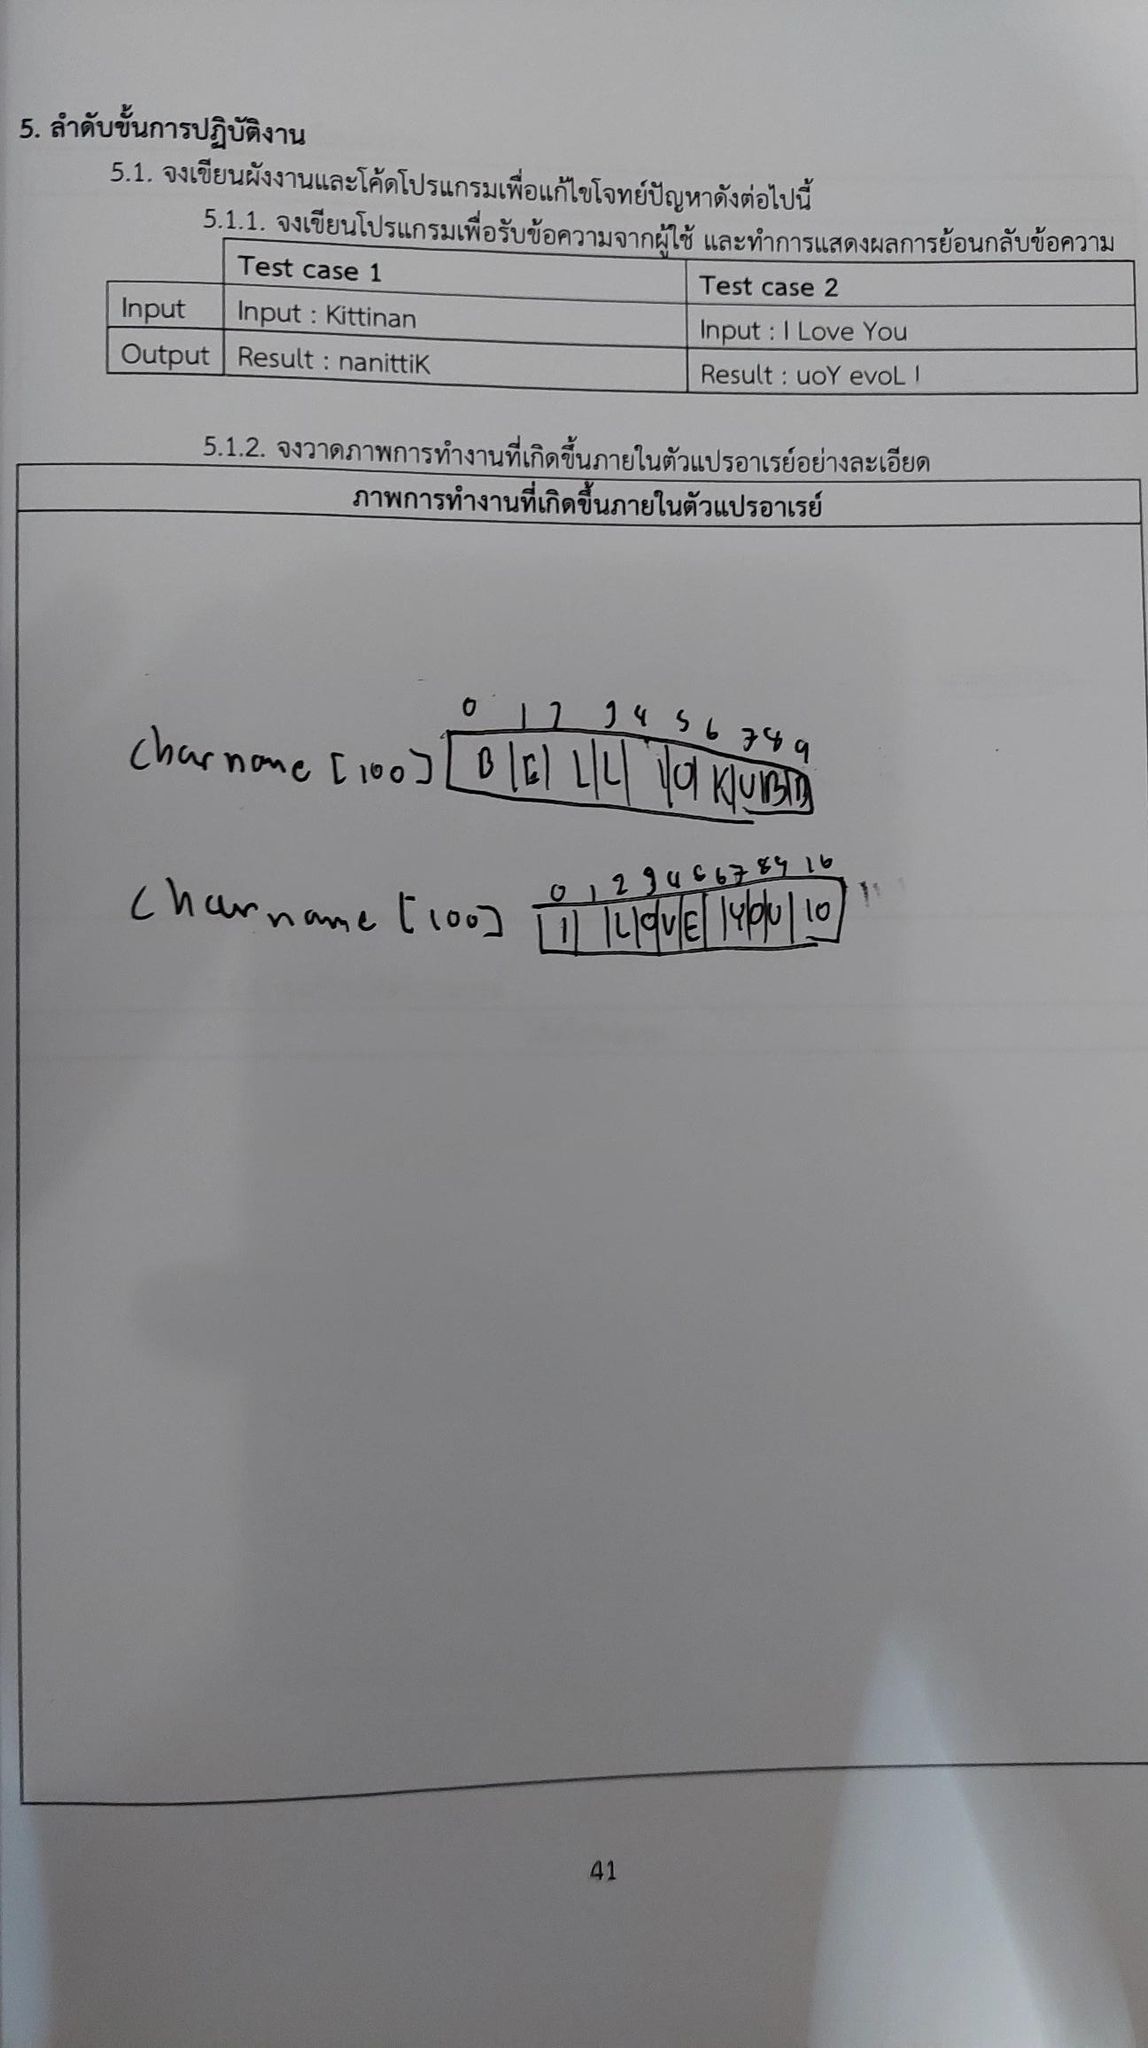 5. ลำดับขั้นการปฏิบัติงาน
5.1. จงเขียนผังงานและโค้ดโปรแกรมเพื่อแก้ไขโจทย์ปัญหาดังต่อไปนี้
5.1.1. จงเขียนโปรแกรมเพื่อรับข้อความจากผู้ใช้ และทำการแสดงผลการย้อนกลับข้อความ
Test case 1 Test case 2
Input Input : Kittinan Input : I Love You
Output Result : nanittiK Result : uoY evoL I
5.1.2. จงวาดภาพการทำงานที่เกิดขึ้นภายในตัวแปรอาเรย์อย่างละเอียด
ภาพการทำงานที่เกิดขึ้นภายในตัวแปรอาเรย์
0 1 2 3 4 5 6 7 8 9
char name [100] B E L L
0 1 2 3 4 5 6 7 8 9 10
char name [100] I L O V E Y O U 10
41